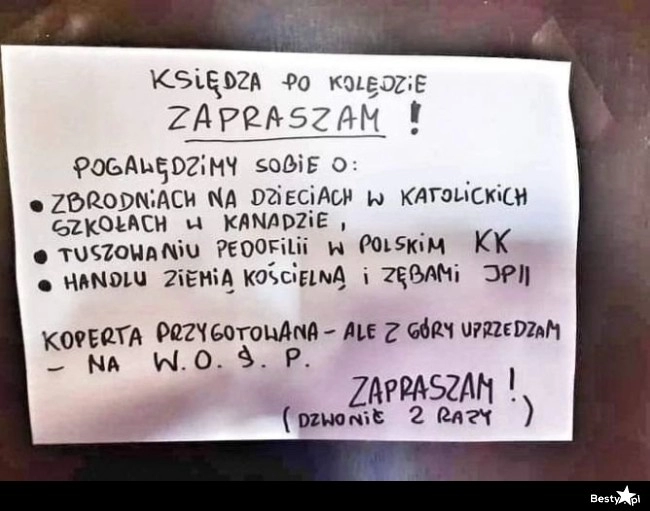 KSIĘDZA PO KOLĘDZIE
ZAPRASZAM !
POGAWĘDZIMY SOBIE O:
• ZBRODNIACH NA DZIECIACH W KATOLICKICH
SZKOŁACH W KANADZIE,
• TUSZOWANIU PEDOFILII W POLSKIM KK
• HANDLU ZIEMIĄ KOŚCIELNĄ i ZĘBAMI JPII
KOPERTA PRZYGOTOWANA – ALE Z GÓRY UPRZEDZAM
– NA W.O.Ś.P.
ZAPRASZAM !
(DZWONIĆ 2 RAZY)
Besty.pl